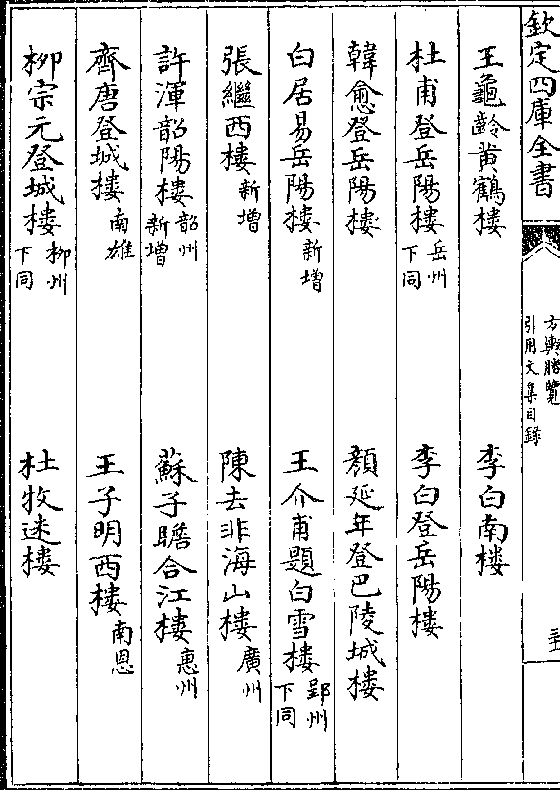 欽定四庫全書
方輿勝覽
引用文集目錄
王龜齡黄鶴樓 李白南樓
杜甫登岳陽樓 岳州下同 李白登岳陽樓
韓愈登岳陽樓 顔延年登巴陵城樓
白居易岳陽樓 新增 王介甫題白雪樓 郢州下同
張繼西樓 新增 陳去非海山樓 廣州
許渾韶陽樓 韶州新增 蘇子瞻合江樓 惠州
齊唐登城樓 南雄 王子明西樓 南恩
柳宗元登城樓 柳州下同 杜牧迷樓